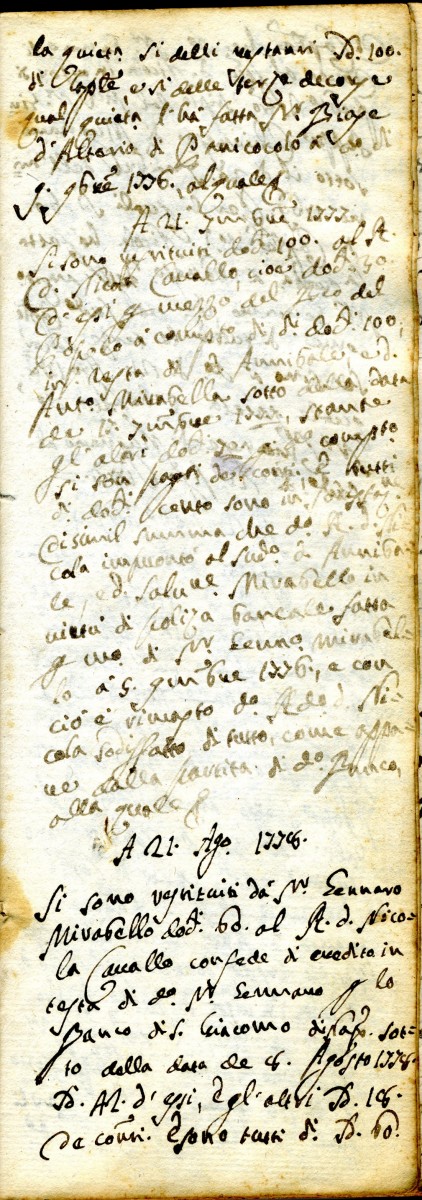 la quieta. si delli restanti D. 100.
di Cap.le e si delle terze decorse
qual quieta l'hà fatta N.r Biase
d'Altario di Panicocolo a
9. 9bre 1776. al quale
A 21. 7mbre 1777.
Si sono restituiti doc. 100. al R.
D. Nicola Cavallo, cioè doc. 50.
D'essi p mezzo del Bco del
à compito di d.i doc. 100,
in testa di d. Annibale, e d.
Ant.o Mirabella sotto della data
de 7mbre 1777, stante
gl'altri doc. compito
si son pagati de cont.i E tutti
d.i doc. cento sono in
Di simil summa che d.o R. d. Ni
cola improntò al sud.o d. Anniba
le, e d. Salv.re Mirabello in
virtù di poliza bancale fatta
p mo. di N.r Genno. Mirabel
lo à 5. 9mbre 1776., e con
ciò è rimasto d.o R.do d. Ni
cola sodisfatto di tutto, come appa=
re dalla partita di d.o Banco,
alla quale
A 21. Ago. 1778.
Si sono restituiti da N.r Gennaro
Mirabello doc. 60. al R. d. Nico=
la Cavallo con fede di credito in
testa di d.o N.r Gennaro p lo
Banco di S. Giacomo di Nap. sot=
to della data de 8. Agosto 1778.
D. 42. d'essi, E gl'altri D. 18.
De cont.i. E sono tutti d.i D. 60.